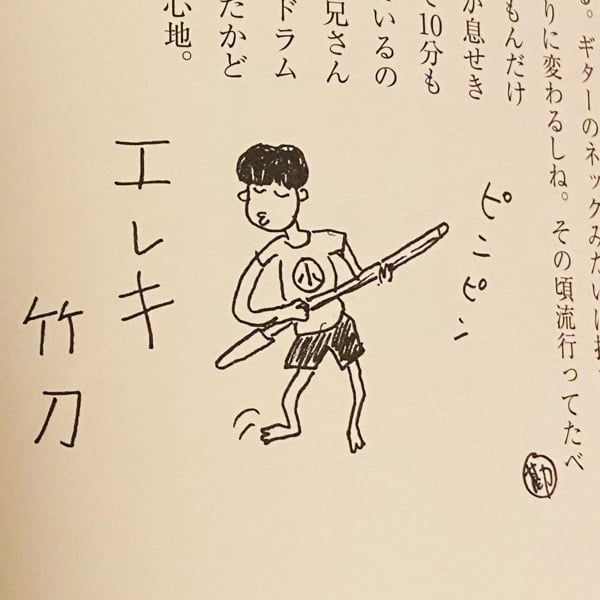 。ギターのネックみたいに
りに変わるしね。その頃流行ってたべ
もんだけ
が息せき
10分も
いるの
兄さん
ドラム
たかど
心地。
ピンピン
小
エレキ
竹刀
勘